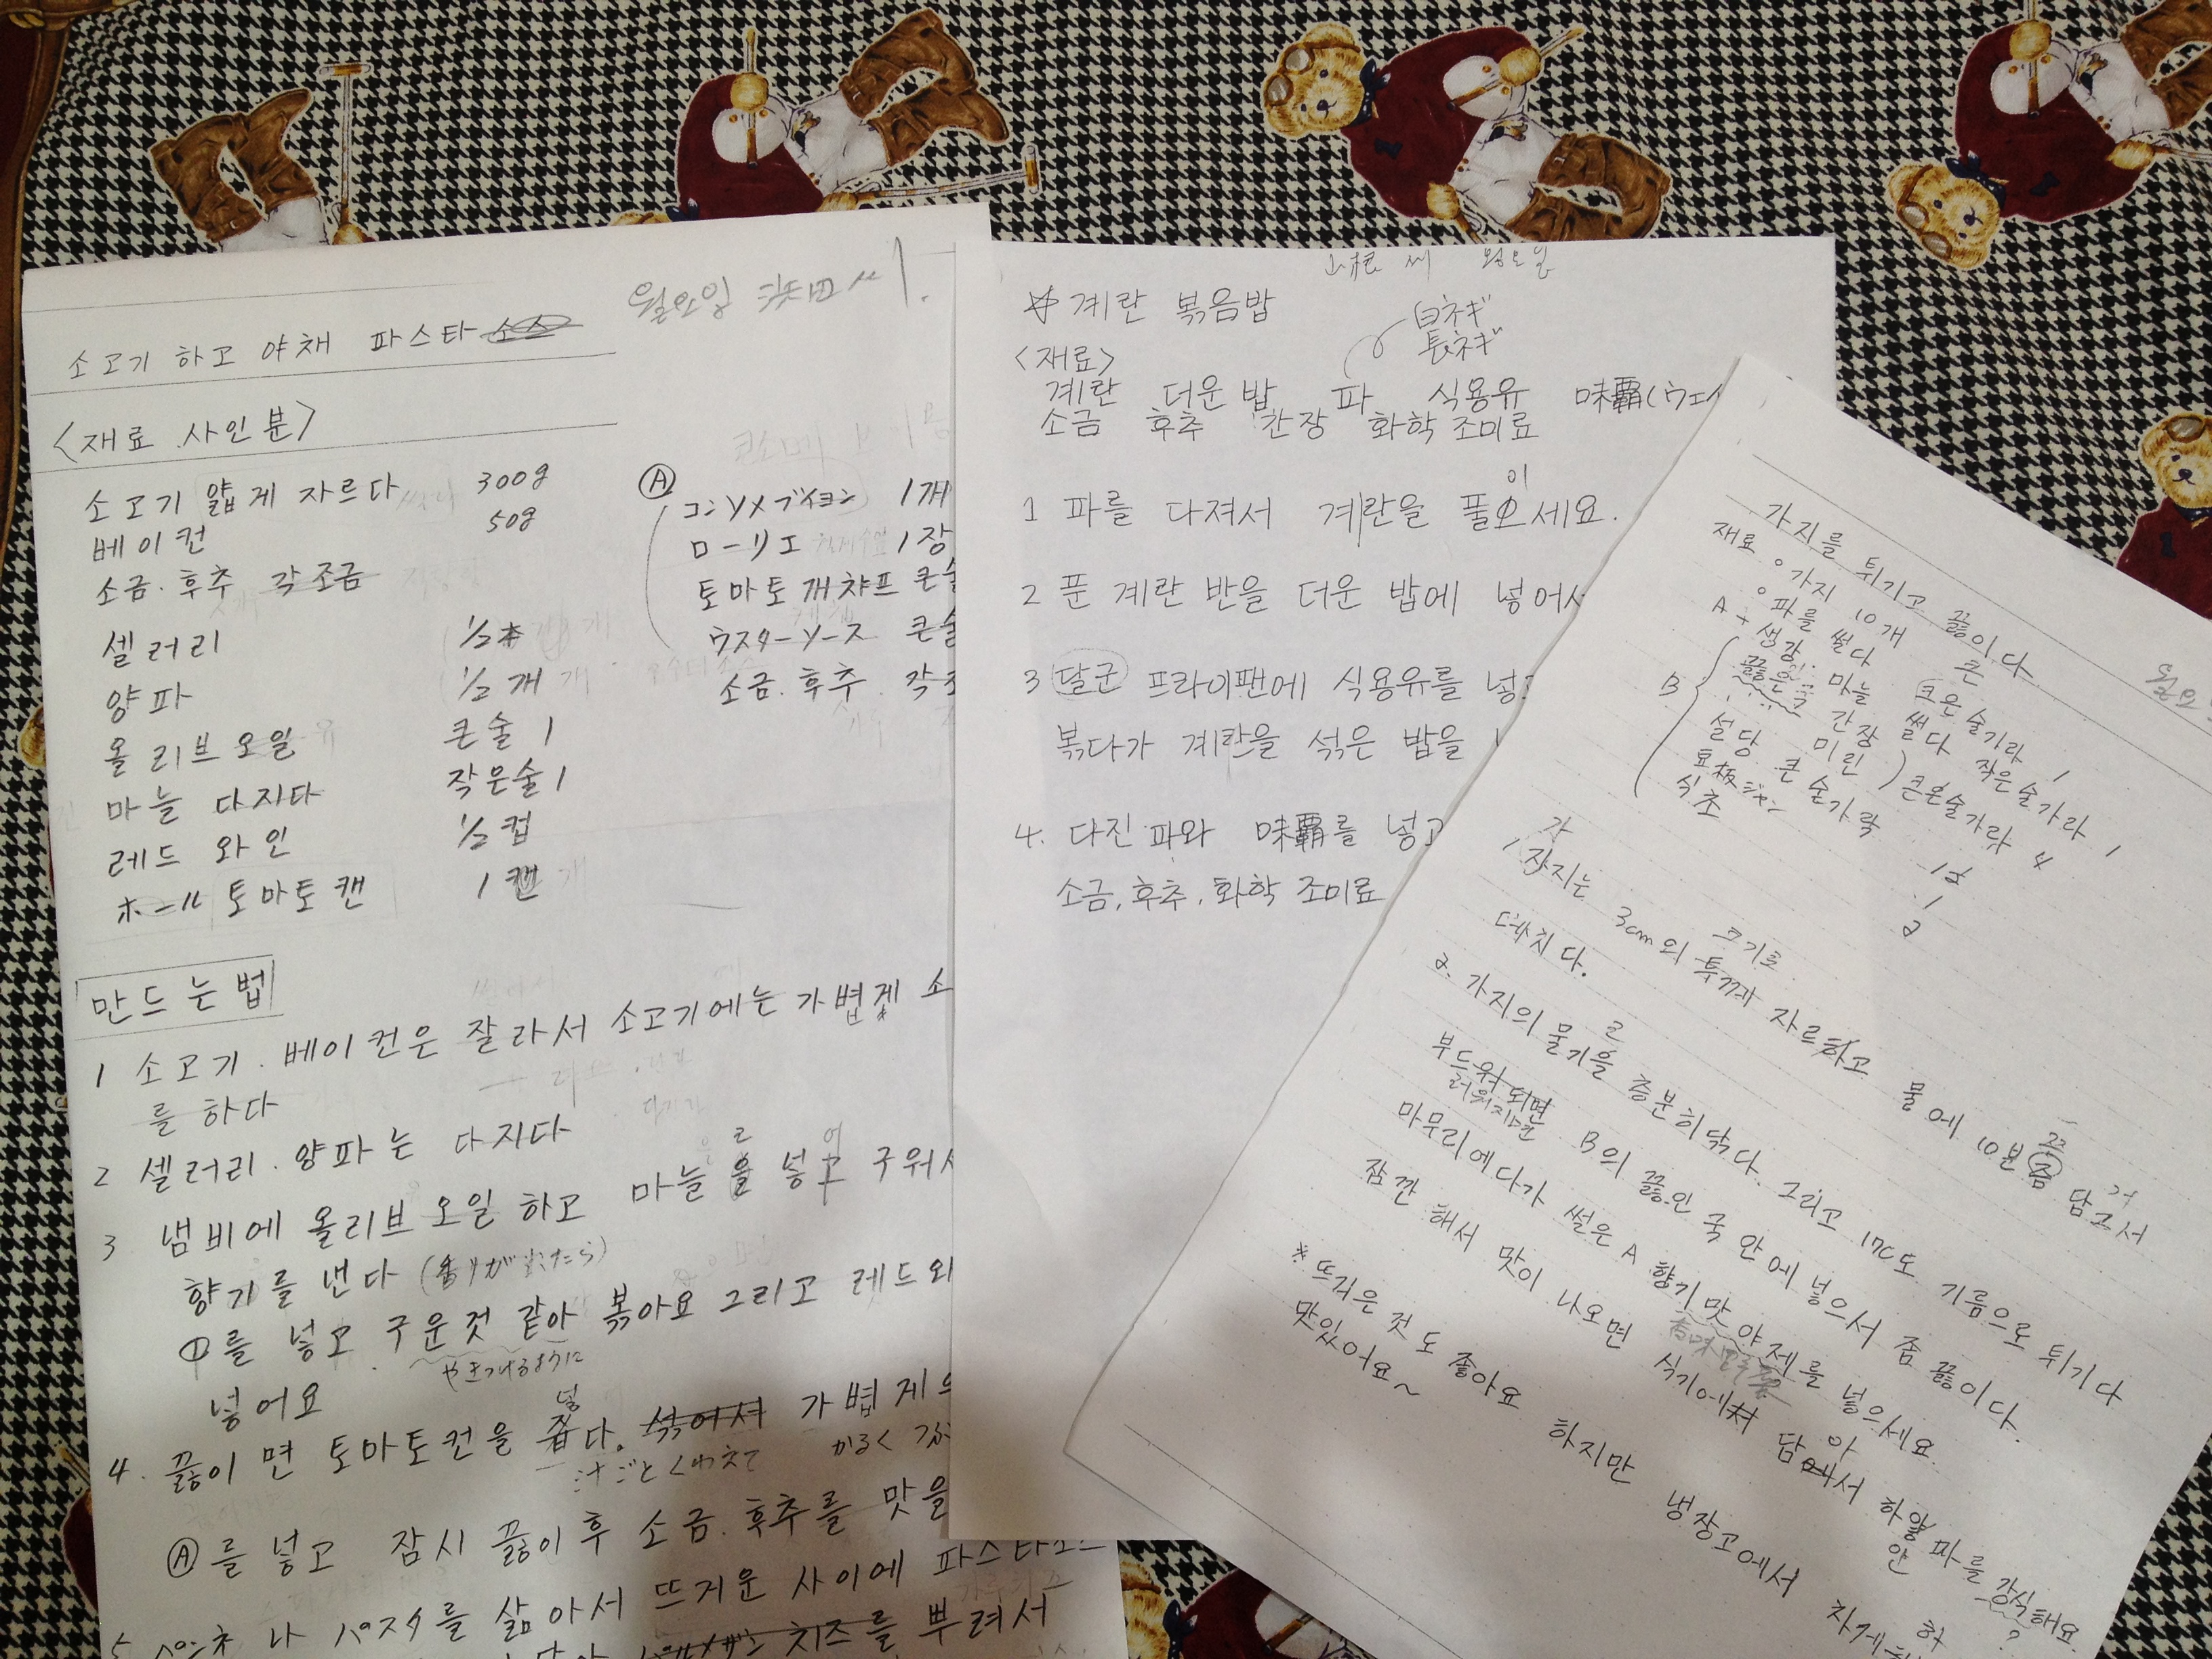 소고기 하고 야채 파스타
월요일
<재료 사인분>
소고기 얇게 자르다 300g
베이컨 50g
소금. 후추 각 조금
셀러리 1/2本
양파 1/2 개
올리브 오일 큰술 1
마늘 다지다 작은술 1
레드 와인 1/2 컵
ホール 토마토 캔 1 캔
Ⓐ コンソメブイヨン 1개
ローリエ 1장
토마토 캐챠프 큰술
ウスターソース 큰술
소금. 후추.
만드는 법
1 소고기. 베이컨은 잘라서 소고기에는 가볍게 소
를 하다
2 셀러리. 양파는 다지다
3 냄비에 올리브 오일 하고 마늘을 넣고 구워서
향기를 낸다 (香りが出たら)
①를 넣고 구운것 같아 볶아요 그리고 레드와
やきつけるように
넣어요
4. 끓이면 토마토컨을 다. 섞어서 가볍게
汁ごとくわえて かるく つぶ
Ⓐ를 넣고 잠시 끓이 후 소금. 후추를 맛을
5 ペンネ 나 パスタ를 삶아서 뜨거운 사이에 파스타소스
치즈를 뿌려서
씨 월요일
☆ 계란 볶음밥
白ネギ
長ネギ
<재료>
계란 더운 밥 파 식용유 味覇(ウェイ
소금 후추 간장 화학 조미료
이
1 파를 다져서 계란을 풀으세요.
2 푼 계란 반을 더운 밥에 넣어서
3 달군 프라이팬에 식용유를 넣고
볶다가 계란을 섞은 밥을
4. 다진 파와 味覇를 넣고
소금, 후추, 화학 조미료
월요
가지를 튀기고 끓이다
재료 ○가지 10개
○파를 썰다 큰 숟가락 1
A + 생강. 마늘 썰다 작은 숟가락 1
B 끓은 국 간장 미린 ) 큰숟가락 4
설당 큰 숟가락 1
豆板ジャン 1
식초 2
가
1 가지는 3cm의 크기로 자르하고 물에 10분쯤 담그서
데치다.
2. 가지의 물기를 충분히 닦다. 그리고 170도 기름으로 튀기다
부드워 되면 B의 끓인 국 안에 넣으서 좀 끓이다.
러워지면
마무리에다가 썰은 A 향기맛 야제를 넣으세요
잠깐 해서 맛이 나오면 식기에 담아서 하얀 파를 장식해요
?
* 뜨거은 것도 좋아요 하지만 냉장고에서 차게
맛있어요~